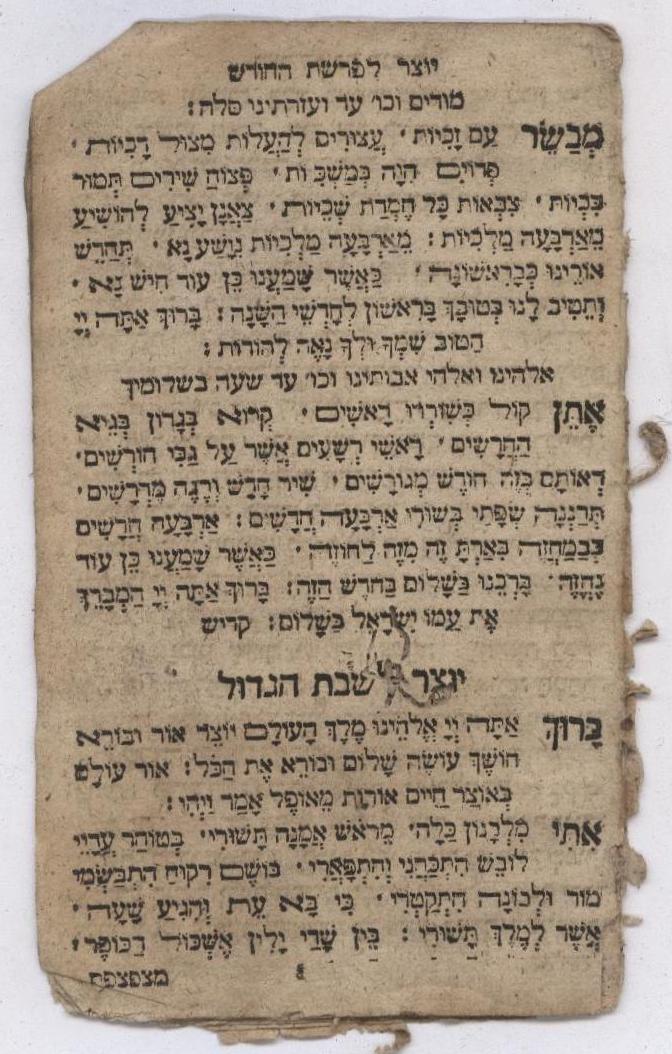 יוצר לפרשת החודש
מודים וכו' עד ועזרתינו סלה:
מְבַשֵּׂר עַם זָכִיוֹת' עֲצוּרִים לְהַעֲלוֹת מִצוּל דָכִיוֹת'
פְּדוּיִם הִוָּה בְּמַשְׂכִּיוֹת' פְּצוֹחַ שִׁירִים תְּמוּר
בְּכִיּוֹת' צִבְאוֹת כָּל חֶמְדַת שְׂכִיּוֹת' צַאֲנָן יָצִיעַ לְהוֹשִׁיעַ
מֵאַרְבָּעָה מַלְכִיּוֹת: מֵאַרְבָּעָה מַלְכִיּוֹת נִוָּשַׁע נָא' תְּחַדֵּשׁ
אוֹרֵינוּ כְּבָרִאשׁוֹנָה' כַּאֲשֶׁר שָׁמַעְנוּ כֵּן עוֹד חִישׁ נָא'
וְתֵטִיב לָנוּ בְּטוּבָךְ בָּרִאשׁוֹן לְחָדְשֵׁי הַשָּׁנָה: בָּרוּךְ אַתָּה יְיָ
הַטּוֹב שִׁמְךָ וּלְךָ נָאֶה לְהוֹדוֹת:
אלהינו ואלהי אבותינו וכו' עד שעה בשלומיך
אֶתֵּן קוֹל כְּשׁוֹרְרוּ רָאשִׁים' קְרוּא בְגָרוֹן בְּגֵיא
הַחֲרָשִׁים' רָאשֵׁי רְשָׁעִים אֲשֶׁר עַל גַּבִּי חוֹרְשִׁים'
דְּאוֹתָם בְּזֶה חוֹדֶשׁ מְגוֹרָשִׁים' שִׁיר חָדָשׁ וְרֶנֶה מִדְרָשִׁים'
תְּרַנֵּנָּה שְׂפָתַי בְּשׁוּרִי אַרְבָּעָה חֲדָשִׁים: אַרְבָּעָה חֲרָשִׁים
כְּבַמַּחֲזֶה בֵּאַרְתָּ זֶה מִזֶּה לַחוֹזֶה' כַּאֲשֶׁר שָׁמַעְנוּ כֵּן עוֹד
נֶחֱזֶה' בָּרְכֵנוּ בַשָּׁלוֹם בַּחֹדֶשׁ הַזֶּה: בָּרוּךְ אַתָּה יְיָ הַמְבָרֵךְ
אֶת עַמּוֹ יִשְׂרָאֵל בַּשָּׁלוֹם: קדיש
יוצר לשבת הגדול
בָּרוּךְ אַתָּה יְיָ אֱלֹהֵינוּ מֶלֶךְ הָעוֹלָם יוֹצֵר אוֹר וּבוֹרֵא
חוֹשֶׁךְ עוֹשֶׂה שָׁלוֹם וּבוֹרֵא אֶת הַכֹּל: אוֹר עוֹלָם
בְּאוֹצַר חַיִּים אוֹרוֹת מֵאוֹפֶל אָמַר וַיֶּהִי:
אִתִּי מִלְּבָנוֹן כַּלָּה' מֵרֹאשׁ אֲמָנָה תָּשׁוּרִי' בְּטוֹהַר עֲדָיֵי
לוֹבֶשׁ הִתְכַּהֲנִי וְהִתְפָּאֲרִי' בּוֹשֶׂם רִקוּחַ הִתְבַּשְּׂמִי
מוֹר וּלְבוֹנָה הִתְקַטְּרִי' כִּי בָּא עֵת וְהִגִּיעַ שָׁעָה'
אֲשֶׁר לְמֶלֶךְ תָּשׁוּרִי: בֵּין שָׁדַי יָלִין אֶשְׁכּוֹל הַכּוֹפֶר:
מצפצפת